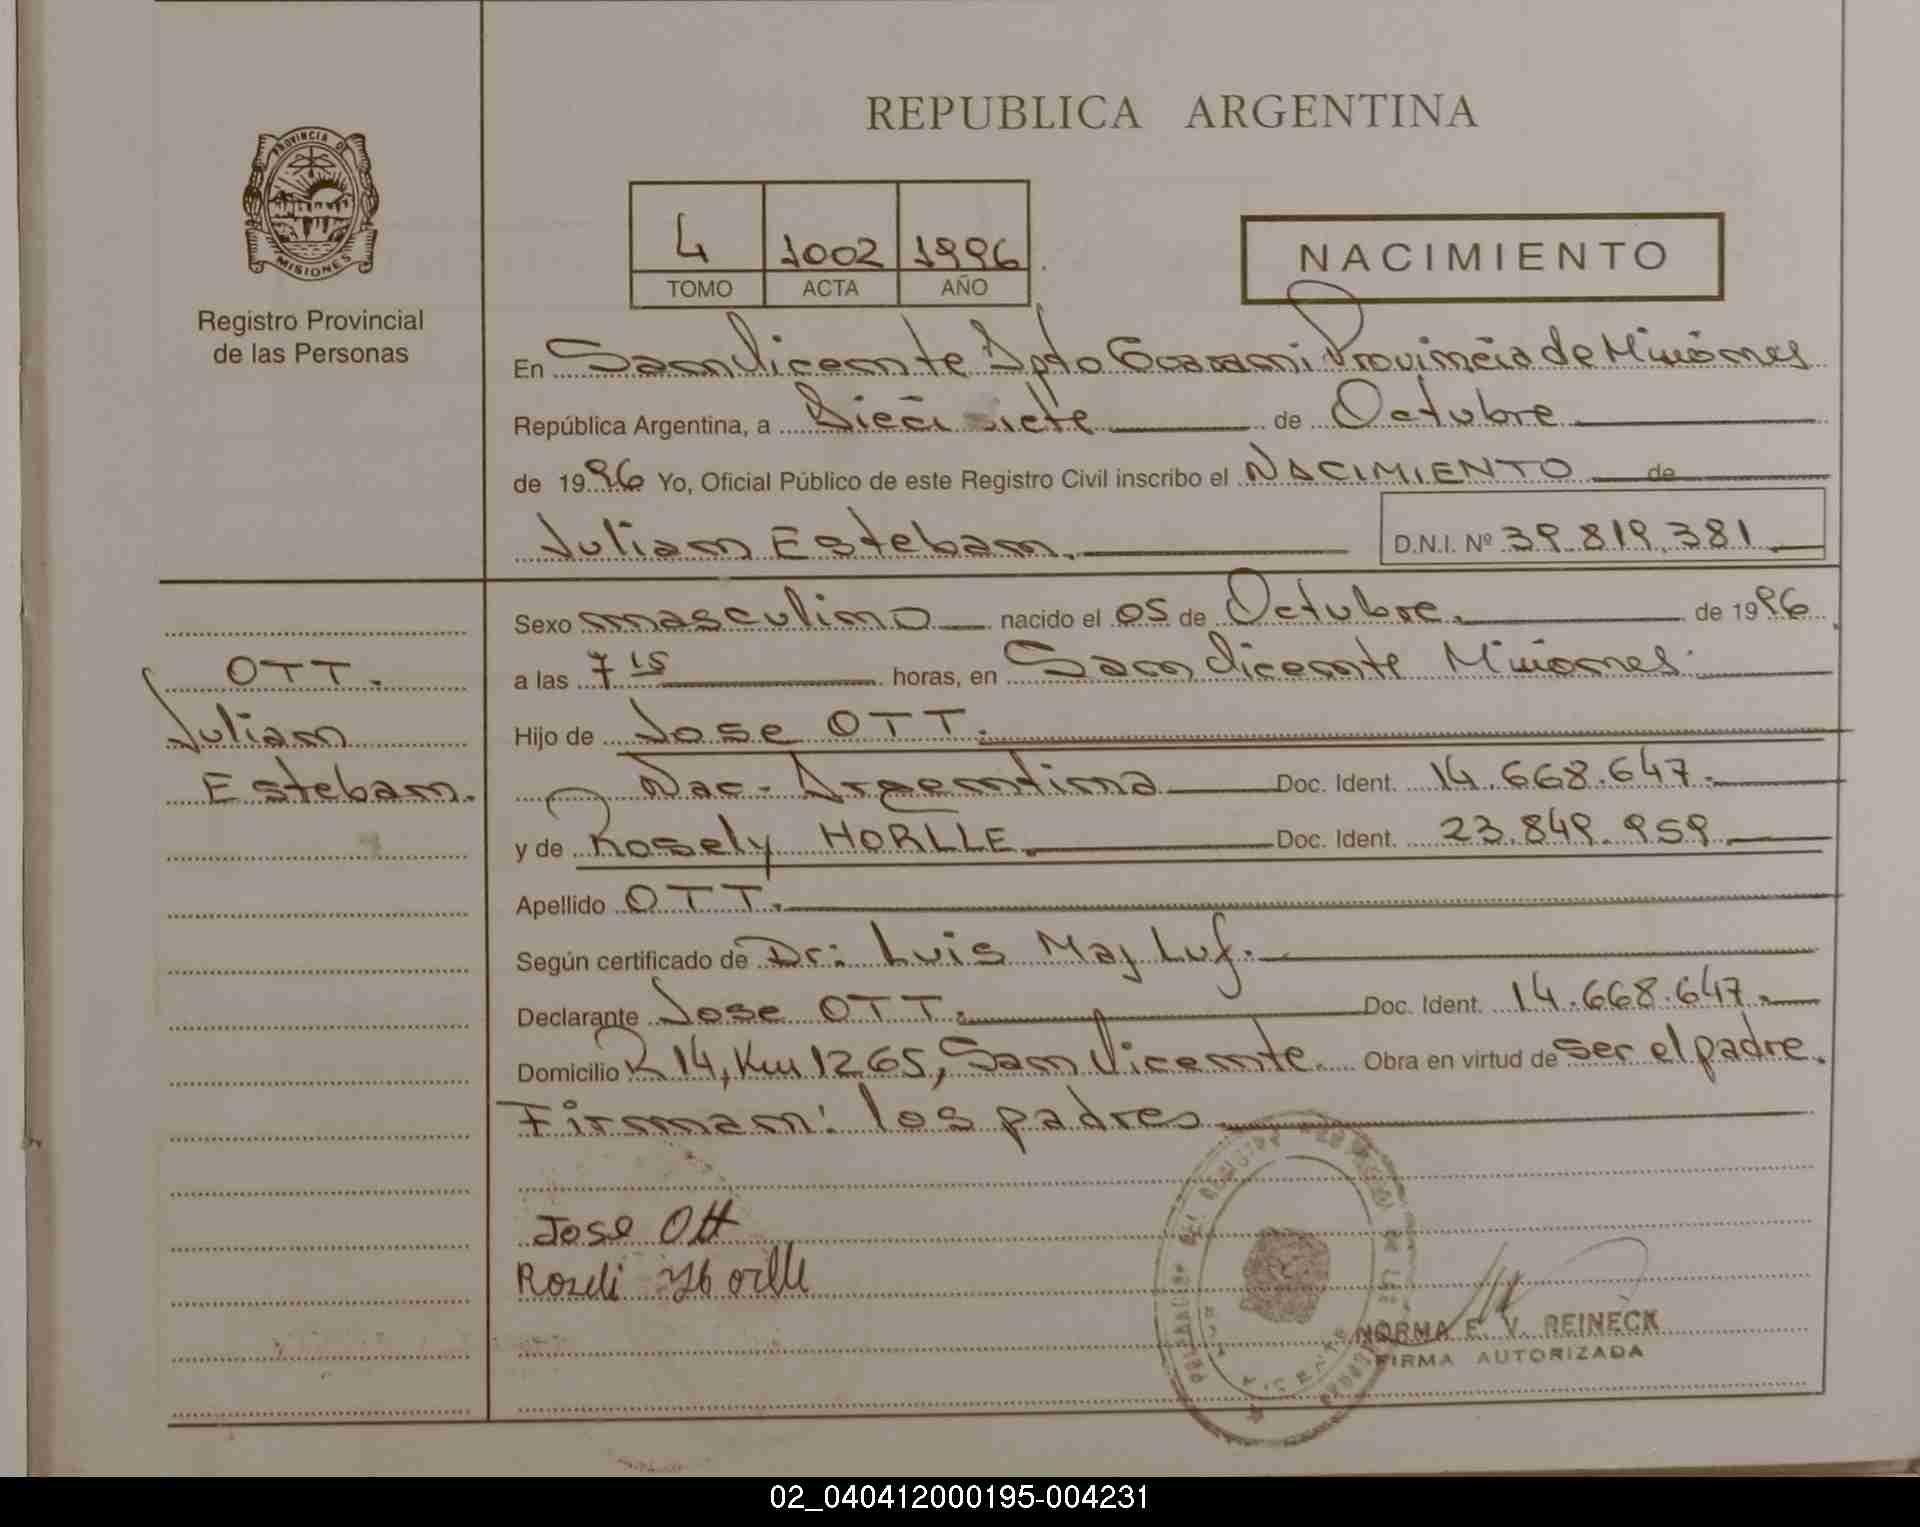 REPUBLICA ARGENTINA
PROVINCIA DE
MISIONES
Registro Provincial
de las Personas
4 1002 1996
TOMO ACTA AÑO
NACIMIENTO
En San Vicente Dpto Guarani Provincia de Misiones
República Argentina, a Dieci siete de Octubre
de 1996 Yo, Oficial Público de este Registro Civil inscribo el NACIMIENTO de
Julian Esteban. D.N.I. Nº 39.819.381
OTT.
Julian
Esteban.
Sexo masculino nacido el 05 de Octubre. de 1996
a las 7 15 horas, en San Vicente Misiones
Hijo de Jose OTT.
Nac. Argentina Doc. Ident. 14.668.647.
y de Rosely HORLLE. Doc. Ident. 23.849.959
Apellido OTT.
Según certificado de Dr: Luis May Luf.
Declarante Jose OTT. Doc. Ident. 14.668.647.
Domicilio R 14, Km 1265, San Vicente. Obra en virtud de ser el padre.
Firman: los padres
Jose Ott
Rozeli Horlle
NORMA E. V. REINECK
FIRMA AUTORIZADA
02_040412000195-004231